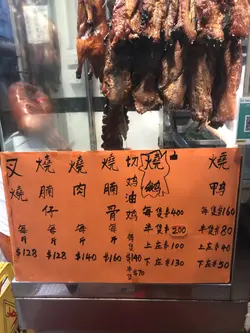 叉燒
每斤
$128
燒腩仔
每斤
$128
燒肉
每斤
$140
燒腩骨
每斤
$160
切鸡油鸡
每隻
$140
半隻
$70
燒鵝
每隻$400
半隻$200
上左$100
下左$130
燒鴨
每隻$160
半隻$80
上左$40
下左$50